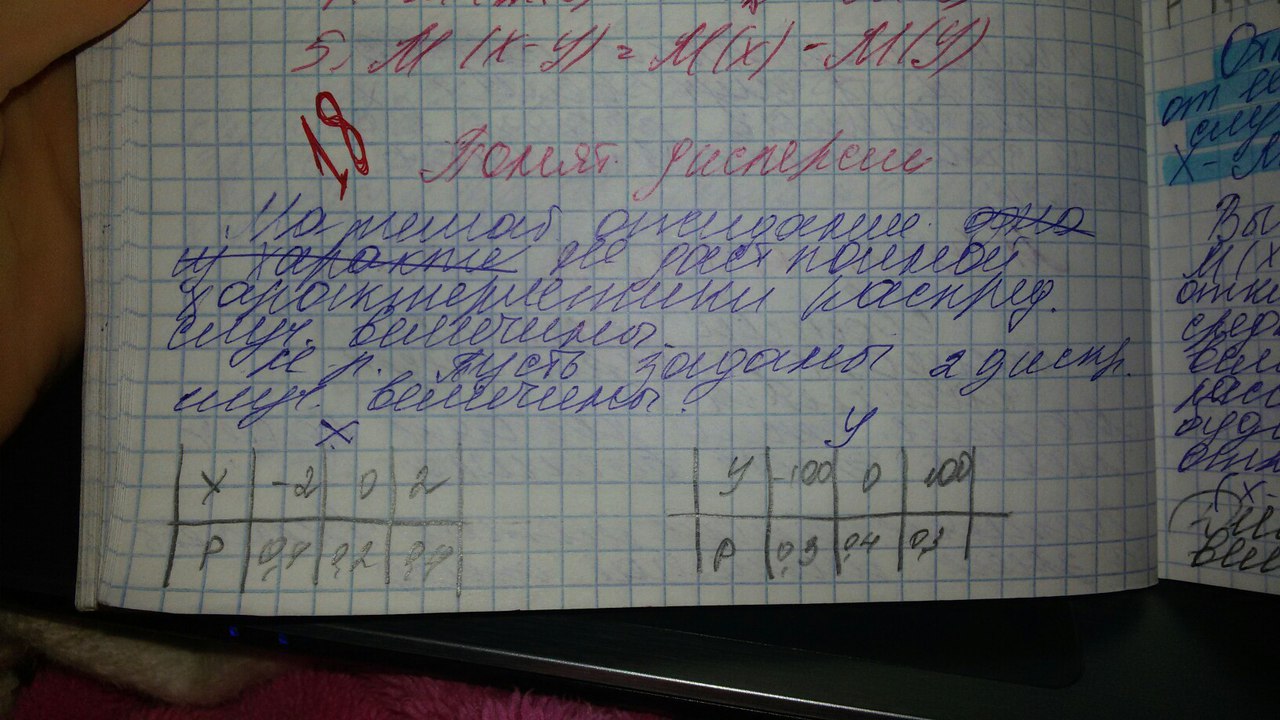 5. М (х-у) = М(х) - М(у)
18 Понят. дисперсии
Математ. ожидание одно
и характе не даст полной
характеристики распред.
случ. величины.
Н р. Пусть заданы 2 дискр.
случ. величины.
X Y
X -2 0 2
P 0,4 0,2 0,4
У -100 0 100
P 0,3 0,4 0,3
от
случ
Х-
Вы
М(х
откл
сред
вели
расс
буд
откл
(х-
вели